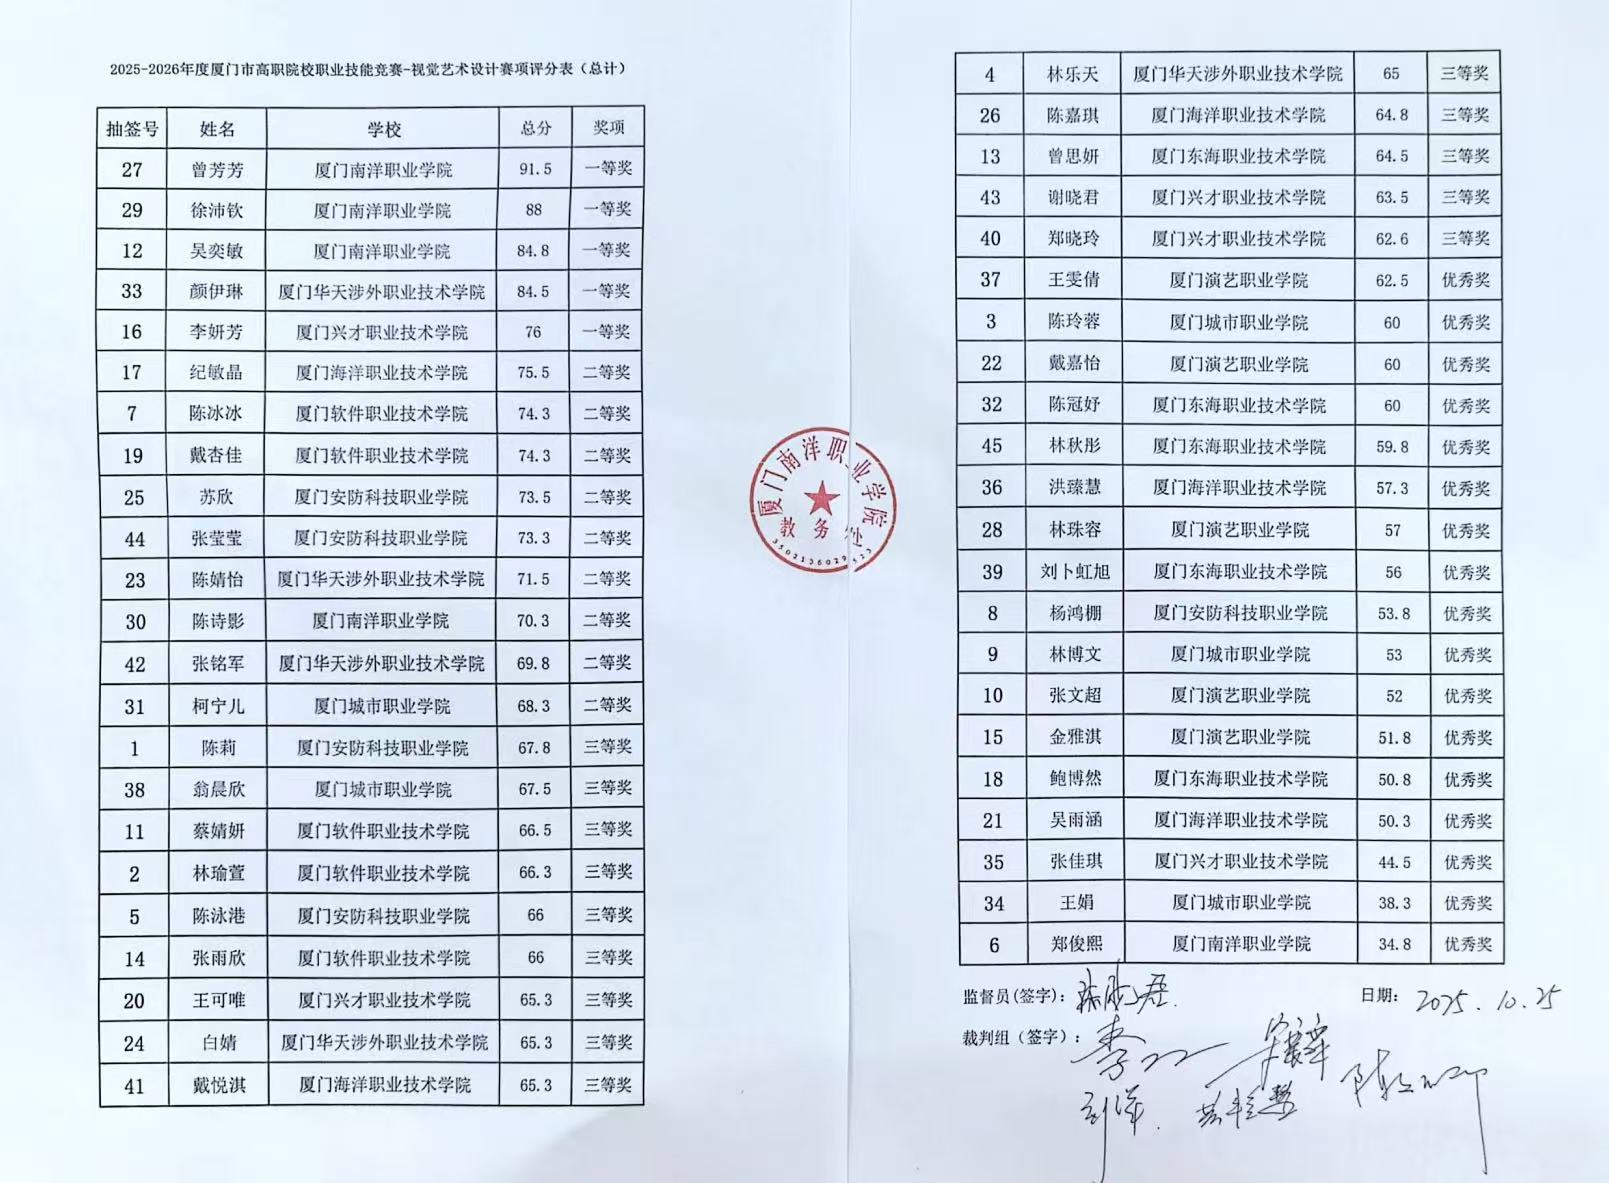 2025-2026年度厦门市高职院校职业技能竞赛-视觉艺术设计赛项评分表（总计）
抽签号 姓名 学校 总分 奖项
27 曾芳芳 厦门南洋职业学院 91.5 一等奖
29 徐沛钦 厦门南洋职业学院 88 一等奖
12 吴奕敏 厦门南洋职业学院 84.8 一等奖
33 颜伊琳 厦门华天涉外职业技术学院 84.5 一等奖
16 李妍芳 厦门兴才职业技术学院 76 一等奖
17 纪敏晶 厦门海洋职业技术学院 75.5 二等奖
7 陈冰冰 厦门软件职业技术学院 74.3 二等奖
19 戴杏佳 厦门软件职业技术学院 74.3 二等奖
25 苏欣 厦门安防科技职业学院 73.5 二等奖
44 张莹莹 厦门安防科技职业学院 73.3 二等奖
23 陈婧怡 厦门华天涉外职业技术学院 71.5 二等奖
30 陈诗影 厦门南洋职业学院 70.3 二等奖
42 张铭军 厦门华天涉外职业技术学院 69.8 二等奖
31 柯宁儿 厦门城市职业学院 68.3 二等奖
1 陈莉 厦门安防科技职业学院 67.8 三等奖
38 翁晨欣 厦门城市职业学院 67.5 三等奖
11 蔡婧妍 厦门软件职业技术学院 66.5 三等奖
2 林瑜萱 厦门软件职业技术学院 66.3 三等奖
5 陈泳港 厦门安防科技职业学院 66 三等奖
14 张雨欣 厦门软件职业技术学院 66 三等奖
20 王可唯 厦门兴才职业技术学院 65.3 三等奖
24 白婧 厦门华天涉外职业技术学院 65.3 三等奖
41 戴悦淇 厦门海洋职业技术学院 65.3 三等奖
厦门南洋职业学院
教务处
4 林乐天 厦门华天涉外职业技术学院 65 三等奖
26 陈嘉琪 厦门海洋职业技术学院 64.8 三等奖
13 曾思妍 厦门东海职业技术学院 64.5 三等奖
43 谢晓君 厦门兴才职业技术学院 63.5 三等奖
40 郑晓玲 厦门兴才职业技术学院 62.6 三等奖
37 王雯倩 厦门演艺职业学院 62.5 优秀奖
3 陈玲蓉 厦门城市职业学院 60 优秀奖
22 戴嘉怡 厦门演艺职业学院 60 优秀奖
32 陈冠妤 厦门东海职业技术学院 60 优秀奖
45 林秋彤 厦门东海职业技术学院 59.8 优秀奖
36 洪臻慧 厦门海洋职业技术学院 57.3 优秀奖
28 林珠容 厦门演艺职业学院 57 优秀奖
39 刘卜虹旭 厦门东海职业技术学院 56 优秀奖
8 杨鸿棚 厦门安防科技职业学院 53.8 优秀奖
9 林博文 厦门城市职业学院 53 优秀奖
10 张文超 厦门演艺职业学院 52 优秀奖
15 金雅淇 厦门演艺职业学院 51.8 优秀奖
18 鲍博然 厦门东海职业技术学院 50.8 优秀奖
21 吴雨涵 厦门海洋职业技术学院 50.3 优秀奖
35 张佳琪 厦门兴才职业技术学院 44.5 优秀奖
34 王娟 厦门城市职业学院 38.3 优秀奖
6 郑俊熙 厦门南洋职业学院 34.8 优秀奖
监督员(签字): 日期: 2025.10.25
裁判组（签字）: